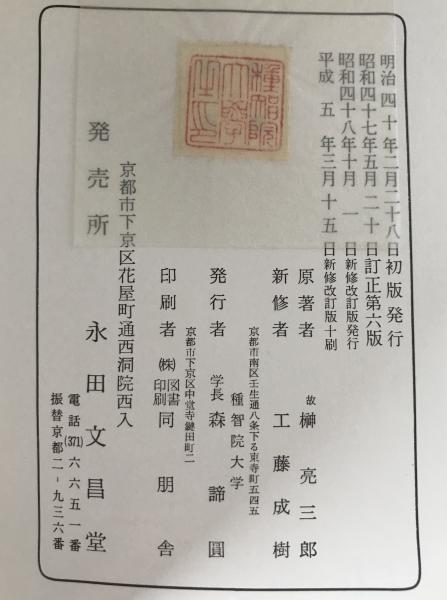 明治四十年二月二十八日初版発行
昭和四十七年五月二十日訂正第六版
昭和四十八年十月一日新修改訂版発行
平成五年三月十五日新修改訂版十刷
原著者 故 榊亮三郎
新修者 工藤成樹
京都市南区壬生通八条下る東寺町五四五
種智院大学
発行者 学長 森諦圓
京都市下京区中堂寺鍵田町二
印刷者 ㈱図書印刷同朋舎
種智院大学之印
京都市下京区花屋町通西洞院西入
発売所 永田文昌堂
電話(371)六六五一番
振替京都二-九三六番